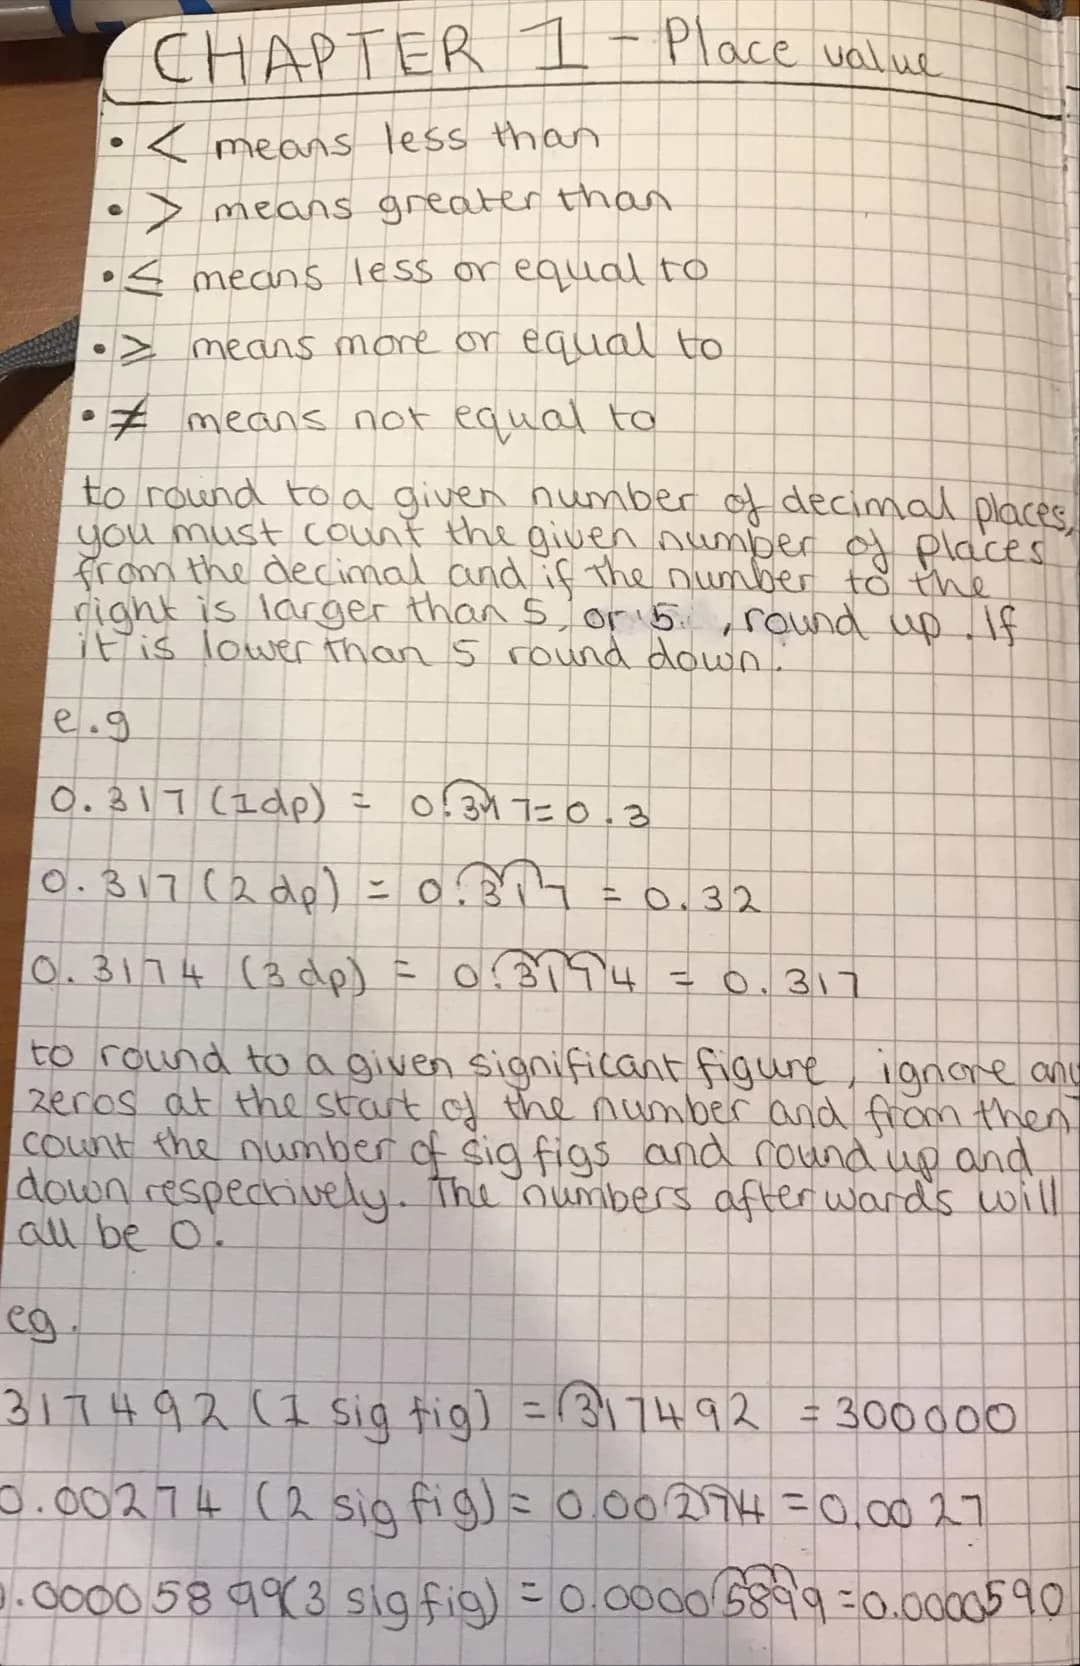 CHAPTER 1 - Place value
• < means less than
• > means greater than
• ≤ means less or equal to
• ≥ means more or equal to
• ≠ means not equal to
to round to a given number of decimal places,
you must count the given number of places
from the decimal and if the number to the
right is larger than 5, or 5 , round up. If
it is lower than 5 round down.
e.g
0.317 (1dp) = 0.317 = 0.3
0.317 (2 dp) = 0.317 = 0.32
0.3174 (3 dp) = 0.3174 = 0.317
to round to a given significant figure, ignore any
zeros at the start of the number and from then
count the number of sig figs and round up and
down respectively. The numbers afterwards will
all be 0.
eg.
317492 (1 sig fig) = 317492 = 300000
0.00274 (2 sig fig) = 0.00274 = 0.0027
.00005899 (3 sig fig) = 0.00005899 = 0.0000590